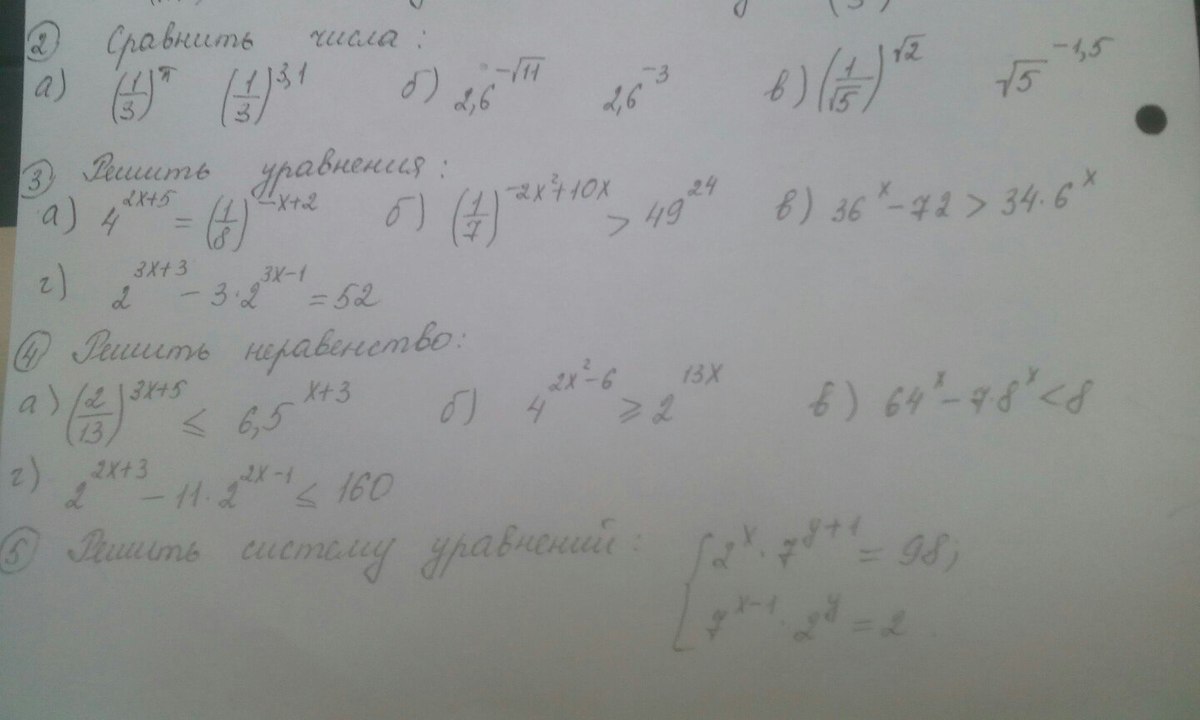 ② Сравнить числа:
а) (1/3)^π (1/3)^3,1 б) 2,6^-√11 2,6^-3 в) (1/√5)^√2 √5^-1,5
③ Решить уравнения:
а) 4^2x+5 = (1/8)^-x+2 б) (1/7)^-2x²+10x > 49^24 в) 36^x - 72 > 34·6^x
г) 2^3x+3 - 3·2^3x-1 = 52
④ Решить неравенство:
а) (2/13)^3x+5 ≤ 6,5^x+3 б) 4^2x²-6 ≥ 2^13x в) 64^x - 7·8^x < 8
г) 2^2x+3 - 11·2^2x-1 ≤ 160
⑤ Решить систему уравнений: { 2^x · 7^y+1 = 98;
7^x-1 · 2^y = 2